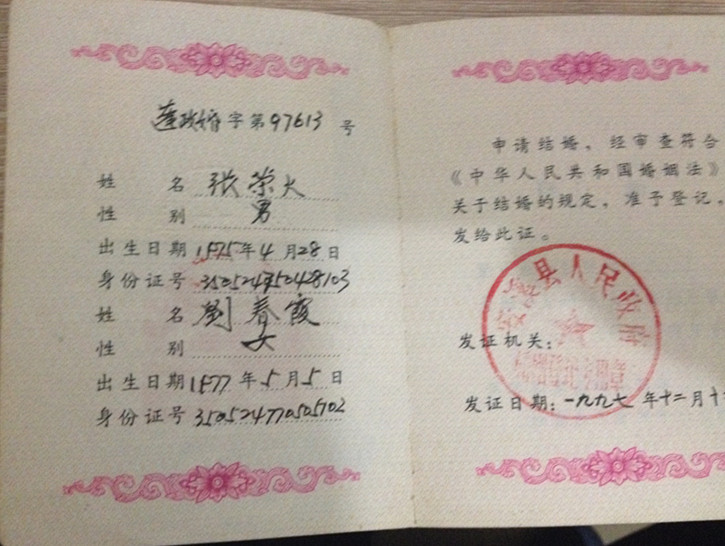 蓬政婚字第97613号
姓 名 张荣火
性 别 男
出生日期 1975年4月28日
身份证号 350524750428103
姓 名 刘春霞
性 别 女
出生日期 1977年5月5日
身份证号 350524770505702
申请结婚，经审查符合
《中华人民共和国婚姻法》
关于结婚的规定，准予登记，
发给此证。
安溪县人民政府
婚姻登记专用章
发证机关：
发证日期：一九九七年十二月十